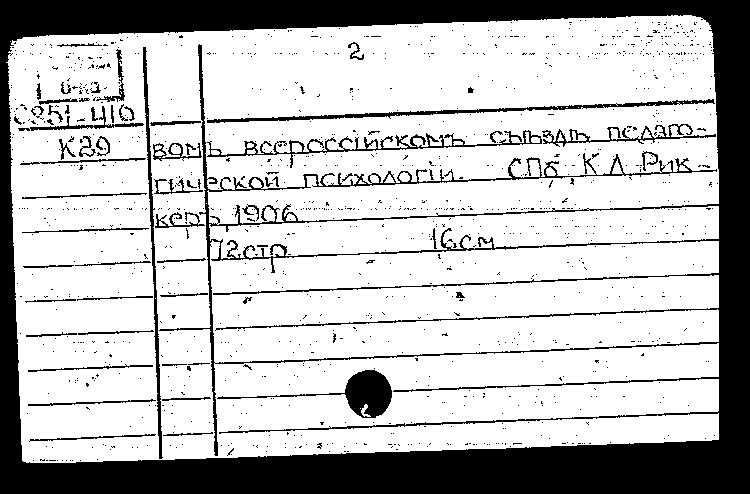 2
б-ка
C251-410
К29
вомъ всероссійскомъ съѣздѣ педаго-
гической психологіи. СПб, К Л Рик-
керъ, 1906
72 стр 16 см